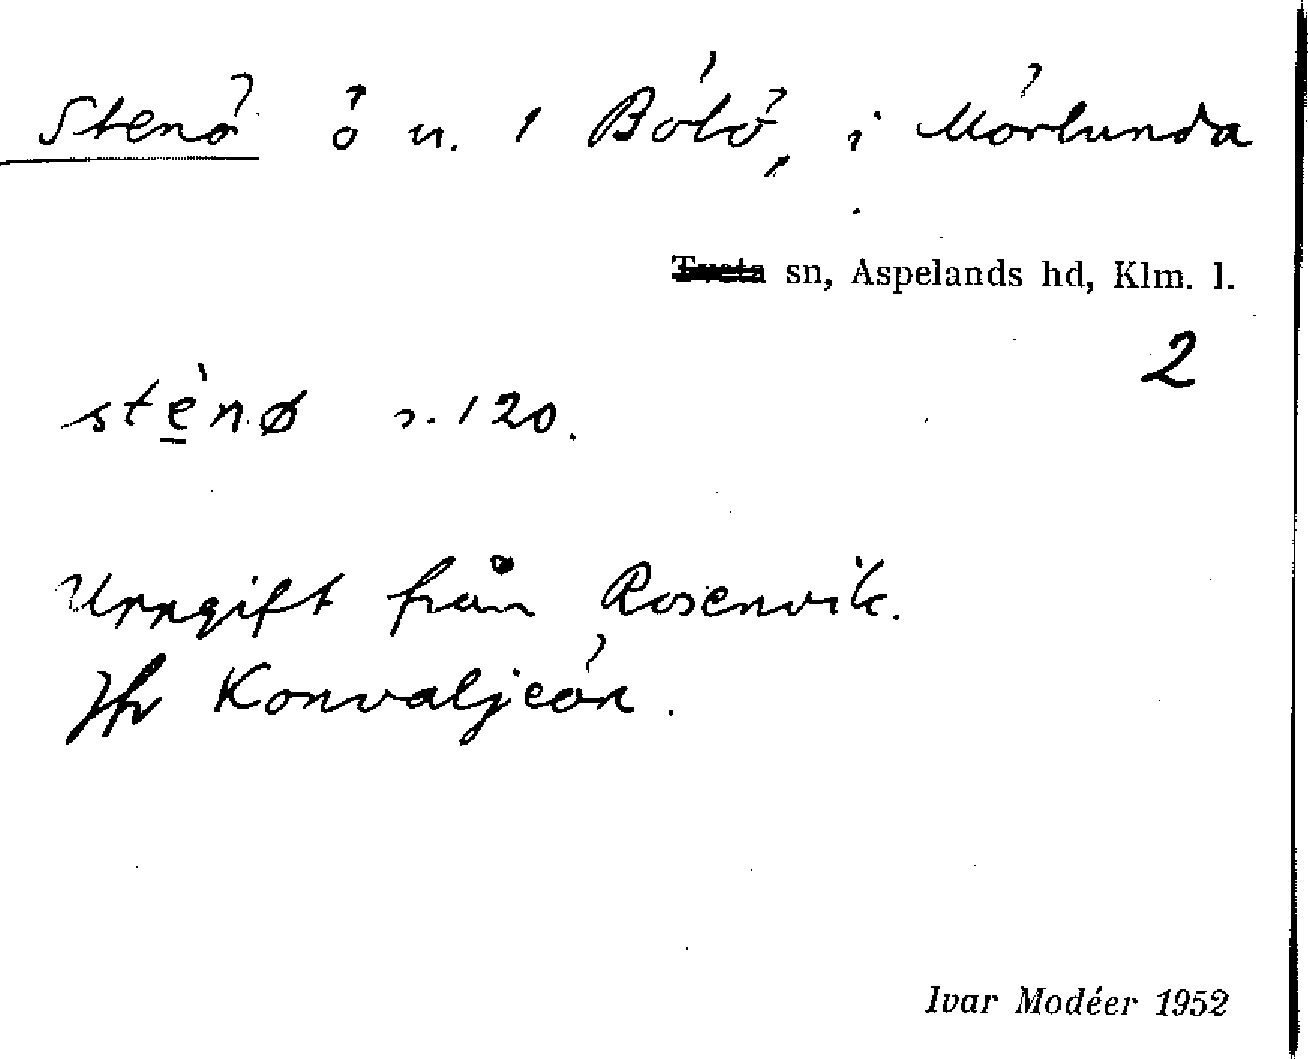 Stenö ö u. 1 Bölö, i Mörlunda
Tveta sn, Aspelands hd, Klm. l.
2
stènø s. 120.
Uppgift från Rosenvik.
Jfr Konvaljeön.
Ivar Modéer 1952